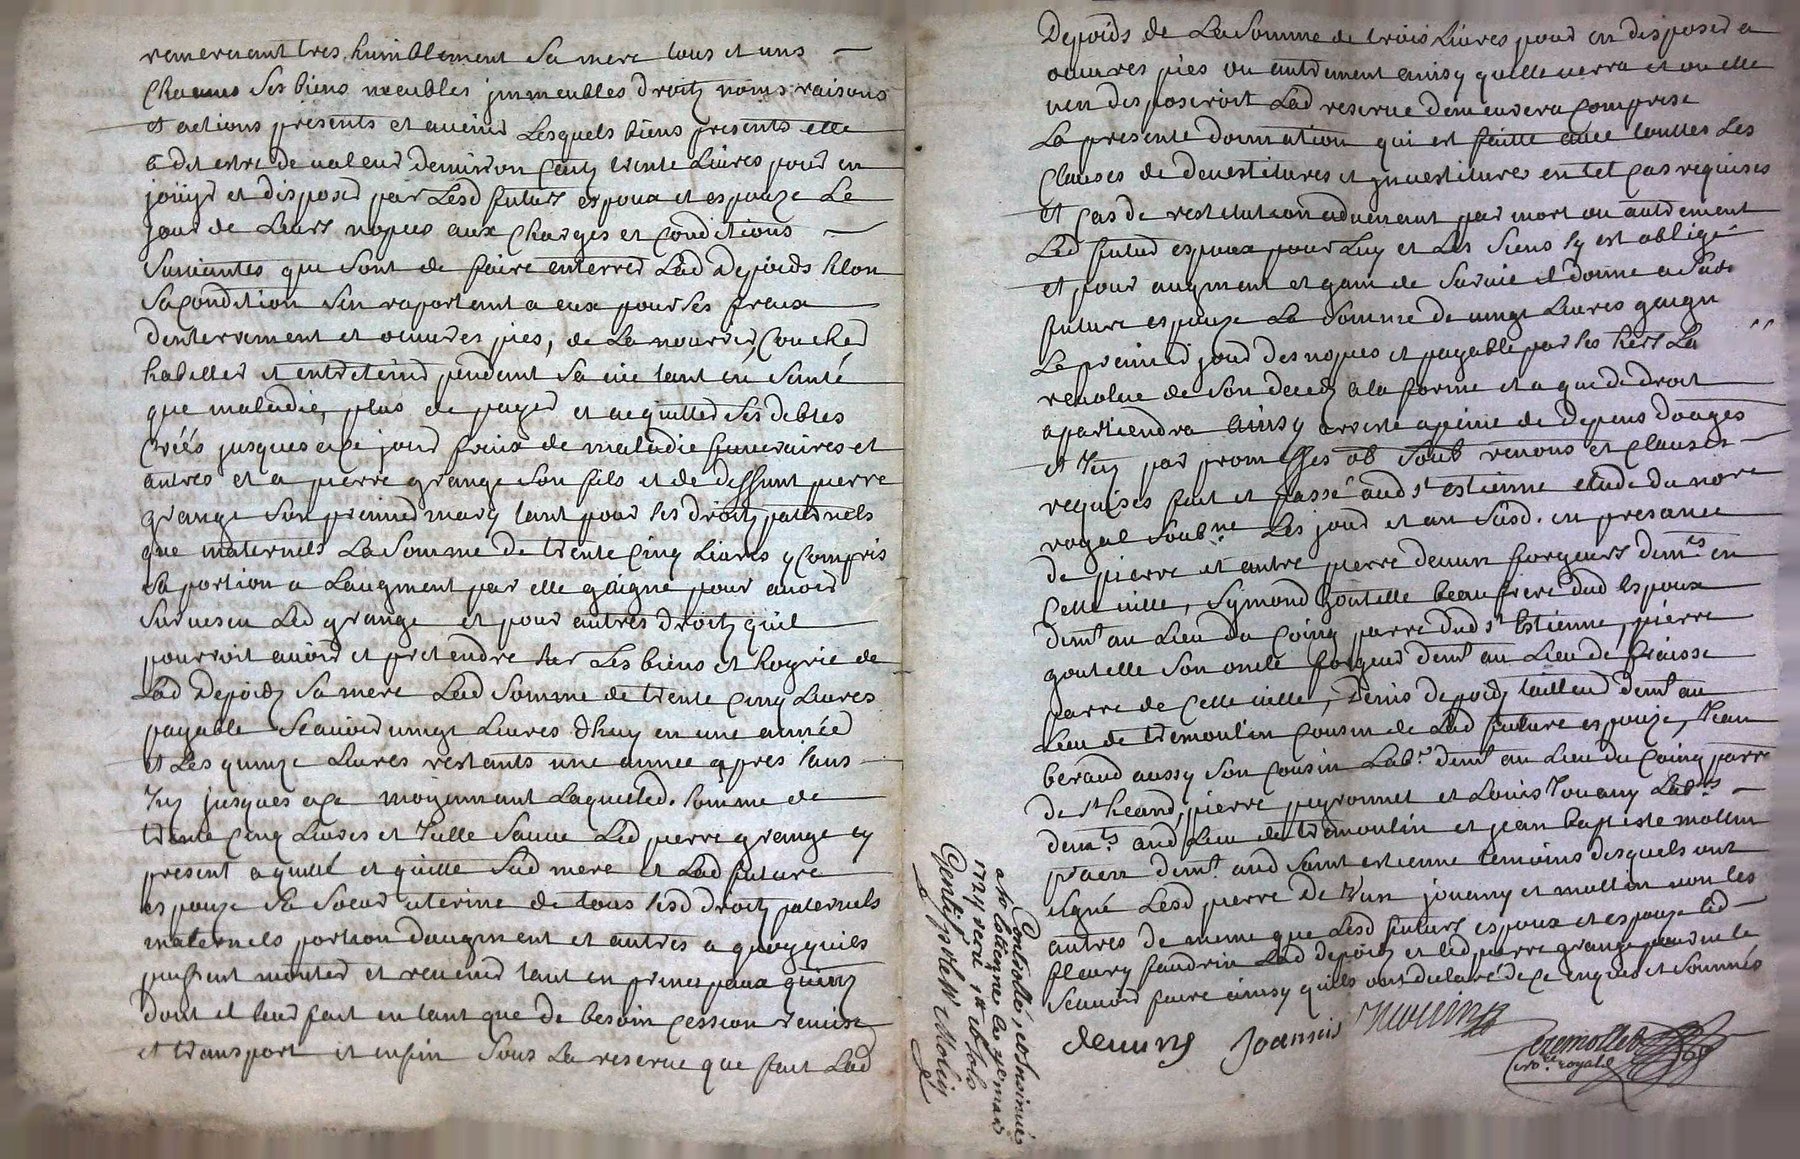 remerciant tres humblement sa mere tous et uns
Chacuns ses biens meubles jmmeubles droitz noms raisons
et actions presents et avenir Lesquels biens presents elle
a dit estre de valeur denviron Cent trente Livres pour en
joüyr et disposer par Lesd futurs espoux et espouze Le
jour de Leurs nopces aux Charges et Conditions
suivantes que sont de faire enterrer Lad Depoids selon
sa condition s'en raportant a eux pour ses fraix
denterrement et oeuvres pies, de La nourrir, Coucher
habiller et entretenir pendant sa vie tant en santé
que maladie, plus de payer et acquitter ses debtes
Créés jusques a ce jour fraix de maladie funeraires et
autres et a pierre grange son fils et de deffunt pierre
grange son premier mary tant pour ses droitz paternels
que maternels La somme de trente Cinq Livres y Compris
sa portion a Laugment par elle gaigné pour avoir
survescu Led grange et pour autres droitz quil
pourroit avoir et pretendre sur Les biens et hoyrie de
Lad Depoidz sa mere Lad somme de trente Cinq Livres
payable scauoir vingt Livres dhuy en une année
et Les quinze Livres restants une année apres sans
jusques a ce moyennant Laquelled. somme de
trente Cinq Livres et Icelle sauve Led pierre grange cy
present a quitté et quitte sad mere et Lad future
espouze sa soeur uterine de tous sesd droitz paternels
maternels portion daugment et autres a quoy quils
puissent monter et revenir tant en principaux
dont il leur fait en tant que de besoin Cession remise
et transport et enfin sous La reserve que fait Lad
Depoids de La somme de trois Livres pour en disposer a
oeuvres pies ou autrement ainsy quelle verra et ou elle
nen disposeroit Lad reserve demeurera Comprise
La presente donnation qui est faitte avec touttes Les
Clauses de devestitures et jnvestitures en tel Cas requises
et Cas de restitution advenant par mort ou autrement
Led futur espoux pour Luy et Les siens sy est obligé
et pour augment et gain de survie il donne a sad
future espouze La somme de vingt Livres gaigné
Le premier jour des nopces et payable par ses hers La
revolue de son decedz a la forme et a qui de droit
apartiendra ainsy a peine de depens
et par promesses ob soub renons et Clauses
requises fait et passé aud st estienne etude du nore
royal soubne Les jour et an susd. en presance
de pierre et autre pierre devun forgeurs demts en
Cette ville, Symond goutelle beau frere dud Espoux
demt au Lieu du Coing parre dud st Estienne, pierre
goutelle son oncle forgeur demt au Lieu de
parre de Cette ville, Denis depoidz tailleur demt au
Lieu de tremoulin Cousin de Lad future espouze, Jean
beraud aussy son Cousin Labr. demt au Lieu du Coing parre
de st heand, pierre peyronnet et Louis Jouany Labrs
demts aud Lieu de tremoulin et jean baptiste mollin
demt. aud saint estienne temoins desquels ont
signé Lesd pierre Devun jouany et mollin non les
autres de meme que Lesd futurs espoux et espouze Led
fleury faudrin Lad depoidz et Led pierre grange pour ne le
scauoir faire ainsy quils ont declaré de ce enquis et sommés
devuns Joannis Mollin
not. royal
Controllé, et insinué
a St Estienne Le
172